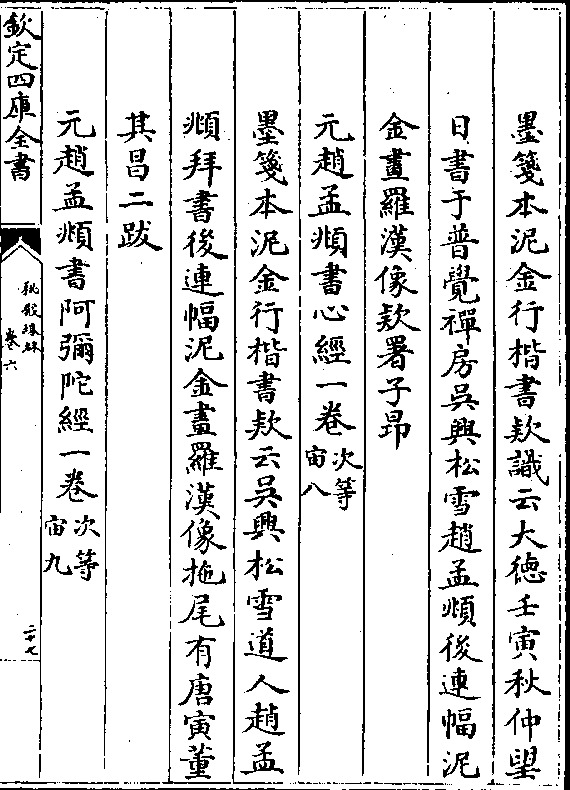 墨箋本泥金行楷書欵識云大德壬寅秋仲望
日書于普覺禪房吳興松雪趙孟頫後連幅泥
金畫羅漢像欵署子昂
元趙孟頫書心經一卷次等宙八
墨箋本泥金行楷書欵云吳興松雪道人趙孟
頫拜書後連幅泥金畫羅漢像拖尾有唐寅董
其昌二跋
元趙孟頫書阿彌陀經一卷次等宙九
欽定四庫全書
秘殿珠林
卷六
二十七